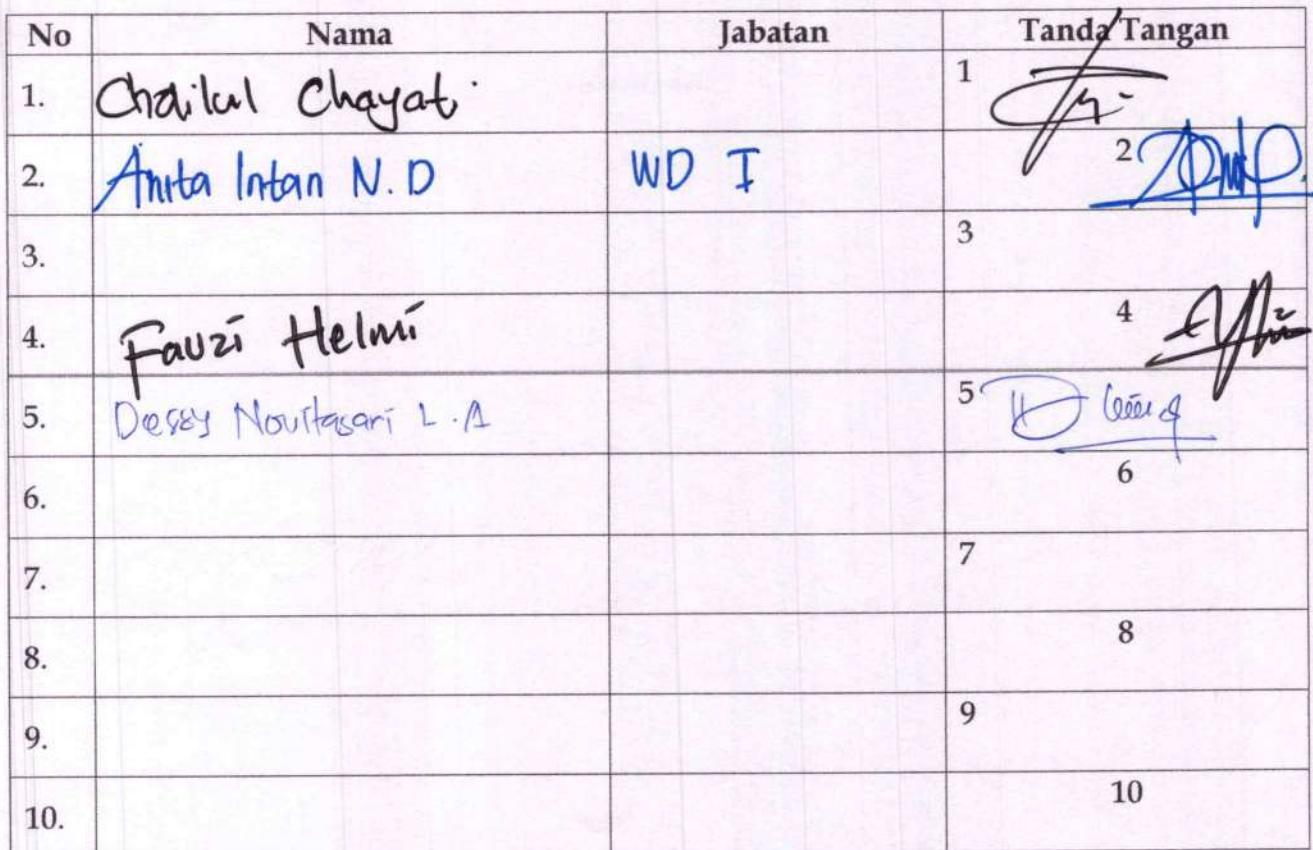 No Nama Jabatan Tanda Tangan
1. Choilul Chayat. 1
2. Anita Intan N.D WD I 2
3. 3
4. Fauzi Helmi 4
5. Dessy Novitasari L.A 5
6. 6
7. 7
8. 8
9. 9
10. 10